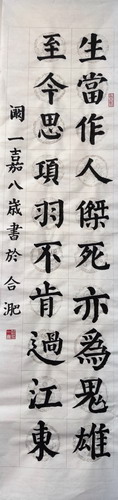 生當作人傑死亦為鬼雄
至今思項羽不肯過江東
阚一嘉八歲書於合淝